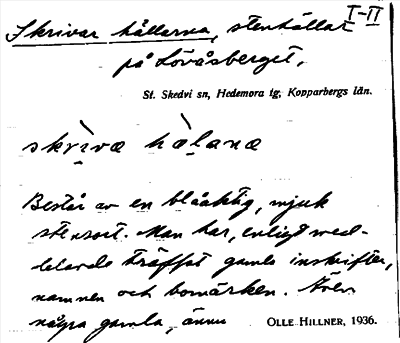 I-II
Skrivar hällarna, stenhällar
på Lövåsberget,
St. Skedvi sn, Hedemora tg, Kopparbergs län.
skrìvæ hælanæ
Består av en blåaktig, mjuk
stensort. Man har, enligt med-
delande träffat gamla inskrifter,
namnen och bomärken. Även
några gamla, ännu
OLLE HILLNER, 1936.